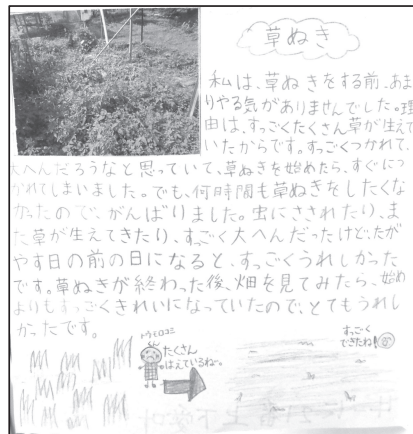 草ぬき
私は、草ぬきをする前、あま
りやる気がありませんでした。理
由は、すっごくたくさん草が生えて
いたからです。すっごくつかれて、
大へんだろうなと思っていて、草ぬきを始めたら、すぐにつ
かれてしまいました。でも、何時間も草ぬきをしたくな
かったので、がんばりました。虫にさされたり、ま
た草が生えてきたり、すっごく大へんだったけど、たが
やす日の前の日になると、すっごくうれしかった
です。草ぬきが終わった後、畑を見てみたら、始め
よりもすっごくきれいになっていたので、とてもうれし
かったです。
トウモロコシ
たくさん
はえているねー。
すっごく
できたね!